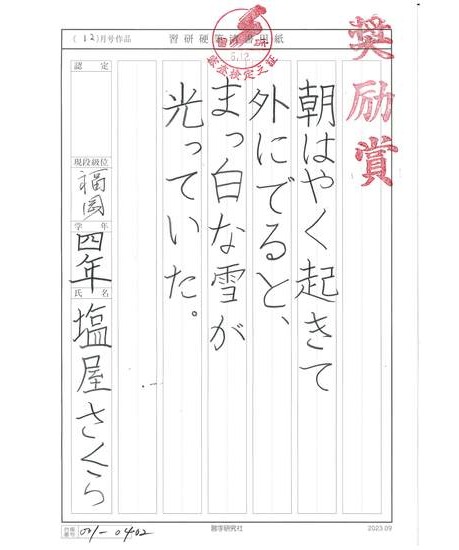 奨励賞
(12)月号作品
習研硬筆清書用紙
審査検定之証
朝はやく起きて
外にでると、
まっ白な雪が
光っていた。
認定
現段級位
福岡
学年
四年
氏名
塩屋さくら
習字研究社
2023.09